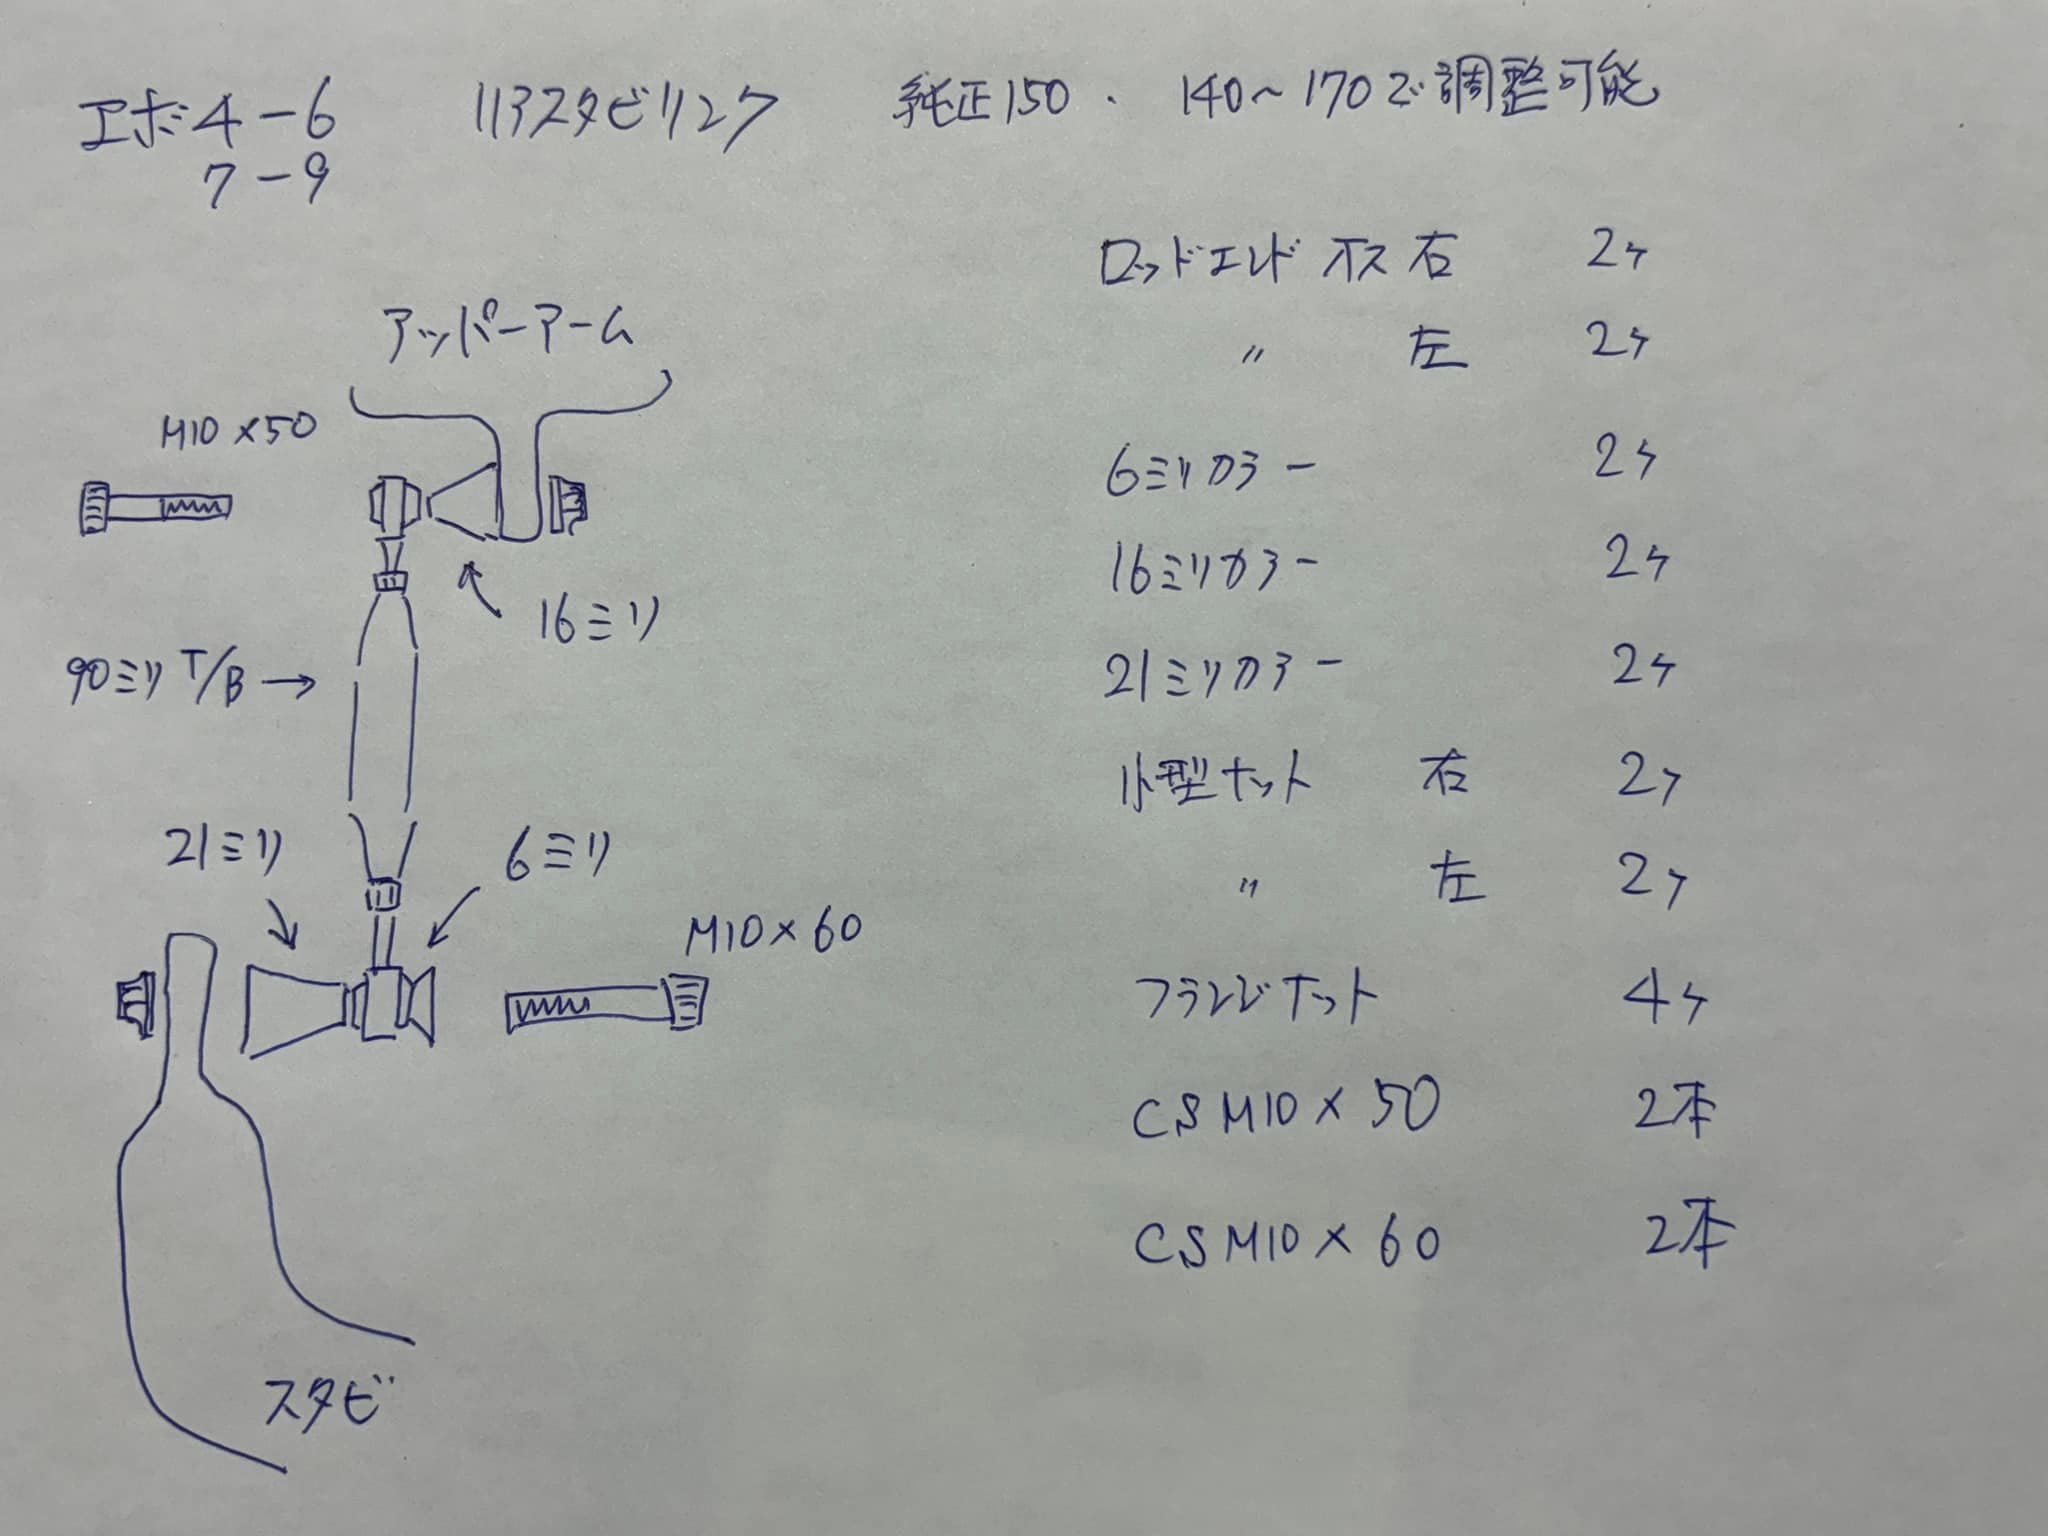 エボ4-6 リアスタビリンク 純正150. 140~170で調整可能
7-9
アッパーアーム
M10×50
16ミリ
90ミリT/B→
21ミリ
6ミリ
M10×60
スタビ
ロッドエンド オス 右 2ケ
〃 左 2ケ
6ミリカラー 2ケ
16ミリカラー 2ケ
21ミリカラー 2ケ
小型ナット 右 2ケ
〃 左 2ケ
フランジナット 4ケ
CSM10×50 2本
CSM10×60 2本